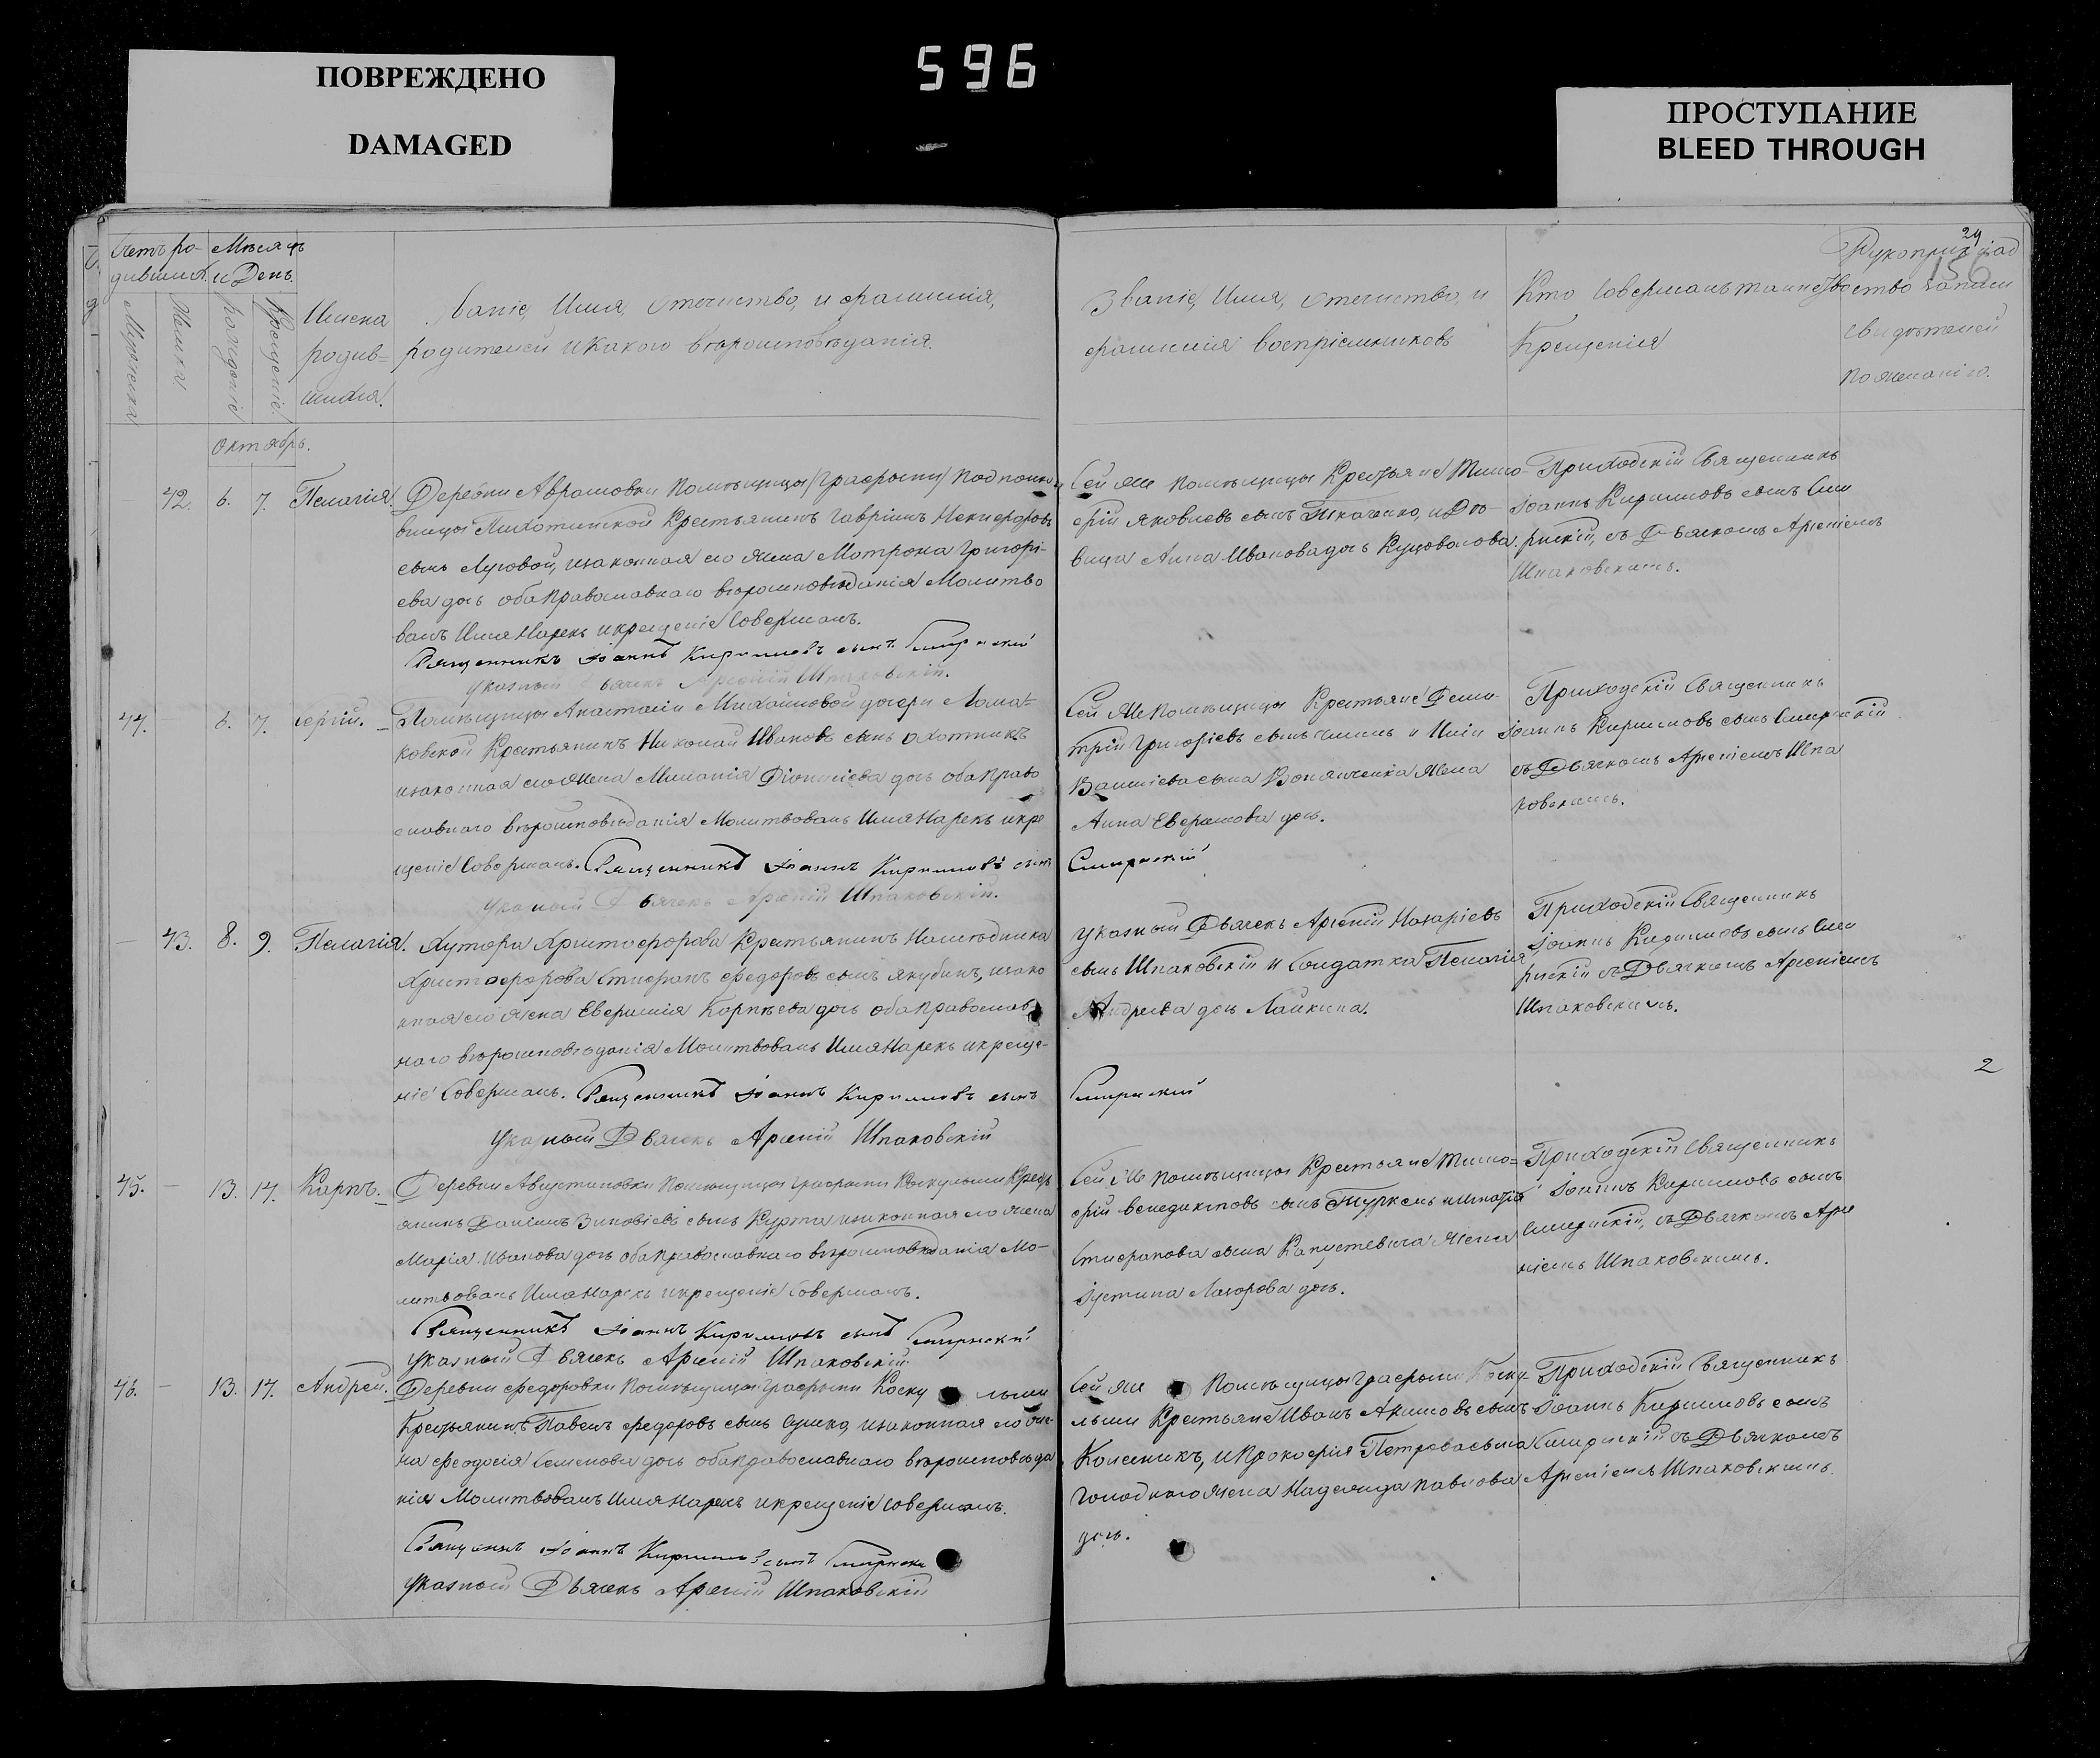 ПОВРЕЖДЕНО
DAMAGED
596
ПРОСТУПАНИЕ
BLEED THROUGH
29
156
Счетъ ро-
дившихся.
Мѣсяцъ
и День.
Мужеска
Женска
рожденіе
Крещеніе
Имена
родив=
шихся.
Званіе, Имя, Отечество, и фамилія,
родителей и какого вѣроисповѣданія.
Званіе, Имя, Отечество, и
фамилія воспріемниковъ
Кто совершалъ таинство
Крещенія
Рукоприклад
ство
свидѣтелей
по желанію.
Октябрь.
42. 6. 7. Пелагія.
Деревни Аврамовки помѣщицы /Графыни/ Подполко
вницы Крестьянинъ Гавріилъ Никифоровъ
сынъ Луговой, и законная его жена Матрона Григорі-
ева дочь оба православнаго вѣроисповѣданія Молитво
валъ Имя Нарекъ и крещеніе совершалъ.
Священникъ Іоаннъ Кирилловъ сынъ Смирнскій
Указный Дьячекъ Арсеній Шпаковскій.
Сей же помѣщицы Крестьяне Тимо-
фій Яковлевъ сынъ Ткаченко, и Вдо-
вица Анна Иванова дочь
Приходскій Священникъ
Іоаннъ Кирилловъ сынъ Сми
рнскій, съ Дьячкомъ Арсеніемъ
Шпаковскимъ.
44. 6. 7. Сергій.
Помѣщицы Анастасіи Михайловой дочери
Крестьянинъ Николай Ивановъ сынъ Охотникъ
и законная его жена Миланія Діонисіева дочь оба право
славного вѣроисповѣданія Молитвовалъ Имя Нарекъ и кре
щеніе совершалъ. Священникъ Іоаннъ Кирилловъ сынъ
Указный Дьячекъ Арсеній Шпаковскій.
Сей же помѣщицы Крестьяне Дими
трій Григорьевъ сынъ и
Василіева сына жена
Анна дочь.
Смирнскій
Приходскій Священникъ
Іоаннъ Кирилловъ сынъ Смирнскій
съ Дьячкомъ Арсеніемъ Шпа
ковскимъ.
43. 8. 9. Пелагія.
Хутора Христофорова Крестьянинъ Наслѣдника
Христофорова Стефанъ Федоровъ сынъ Якубинъ, и зако
нная его жена Карпѣева дочь оба православ-
наго вѣроисповѣданія Молитвовалъ Имя Нарекъ и креще-
ніе совершалъ. Священникъ Іоаннъ Кирилловъ сынъ
Указный Дьячекъ Арсеній Шпаковскій
Указный Дьячекъ Арсеній Назаріевъ
сынъ Шпаковскій и Солдатка Пелагія
Андреева дочь Лайкина.
Смирнскій
Приходскій Священникъ
Іоаннъ Кирилловъ сынъ Сми
рнскій съ Дьячкомъ Арсеніемъ
Шпаковскимъ.
2
45. 13. 14. Карпъ.
Деревни Августиновки Помѣщицы Графыни Коскулльши Кресть
янинъ Даніилъ Зиновіевъ сынъ Курта и законная его жена
Марія Иванова дочь оба православнаго вѣроисповѣданія Мо-
литвовалъ Имя Нарекъ и крещеніе совершалъ.
Священникъ Іоаннъ Кирилловъ сынъ Смирнскій
Указный Дьячекъ Арсеній Шпаковскій
Сей же помѣщицы Крестьяне Тимо=
фій Венедиктовъ сынъ и Игнатія
Стефанова сына Капустевича жена
Іустина Лазорева дочь.
Приходскій Священникъ
Іоаннъ Кирилловъ сынъ
Смирнскій, съ Дьячкомъ Арсе
ніемъ Шпаковскимъ.
46. 13. 14. Андрей.
Деревни Федоровки Помѣщицы Графыни Коску льши
Крестьянинъ Павелъ Федоровъ сынъ и законная его же-
на Феодосія Семенова дочь оба православнаго вѣроисповѣда
нія Молитвовалъ Имя Нарекъ и крещеніе совершалъ.
Священникъ Іоаннъ Кирилловъ сынъ Смирнскій
Указный Дьячекъ Арсеній Шпаковскій
Сей же Помѣщицы Графыни Коску-
льши Крестьяне Иванъ Акимовъ сынъ
Колесникъ, и Прокофія Петрова сына
Голоднаго жена Надежда Павлова
дочь.
Приходскій Священникъ
Іоаннъ Кирилловъ сынъ
Смирнскій съ Дьячкомъ
Арсеніемъ Шпаковскимъ.